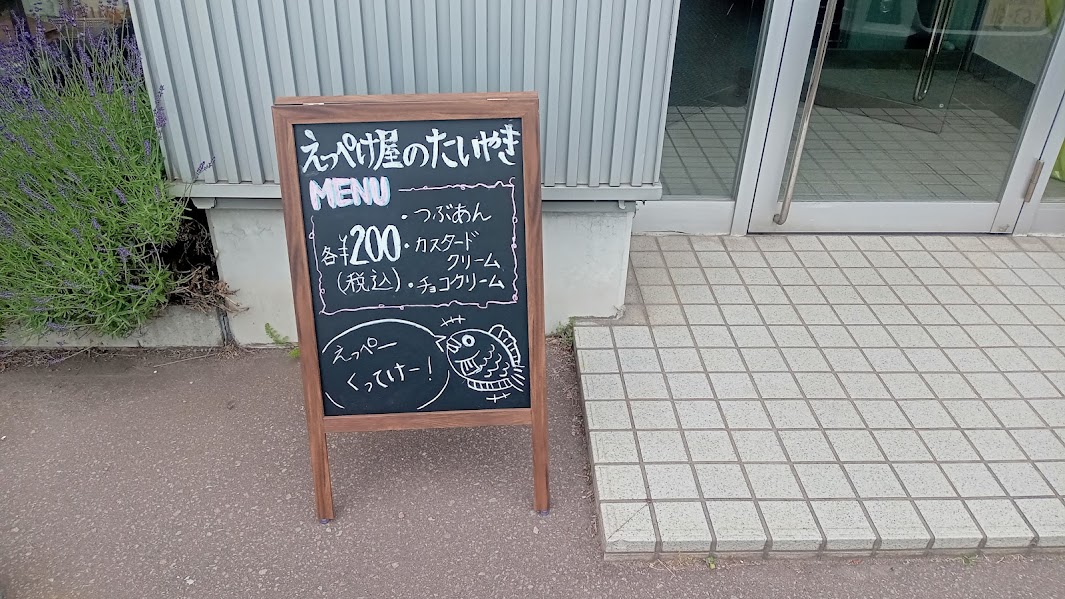 えっぺけ屋のたいやき
MENU
各¥200
(税込)
・つぶあん
・カスタード
クリーム
・チョコクリーム
えっぺー
くってけー!